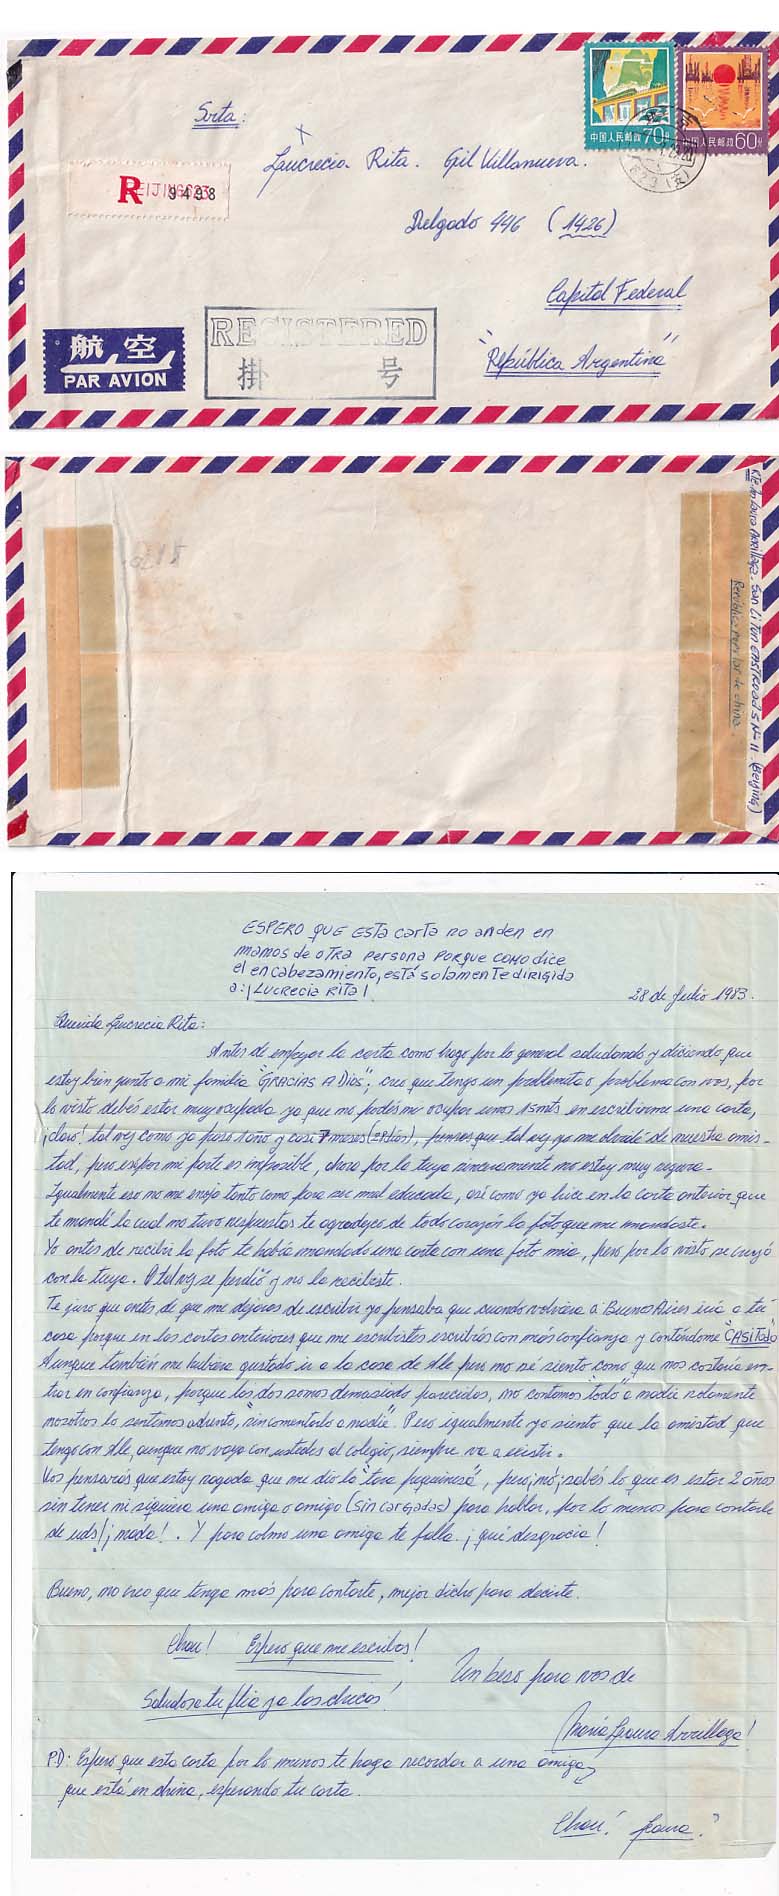 中国人民邮政 70分
中国人民邮政 60分
Srta:
Lucrecia Rita. Gil Villanueva.
R BEIJING 9498
Delgado 446 (1426)
Capital Federal
"República Argentina"
REGISTERED
掛 号
航空
PAR AVION
Rte. Ma Laura Arrillaga. San Li Tun Nº 11 (Beijing)
República popular de china.
ESPERO QUE ESTA carta no anden en
manos de OTRA PERSONA PORQUE COMO dice
el encabezamiento, está solamente dirigida
a: ¡LUCRECIA RITA!
28 de Julio 1983.
Querida Lucrecia Rita:
Antes de empezar la carta como hago por lo general saludando y diciendo que
estoy bien junto a mi familia "GRACIAS A DIOS", creo que tengo un problemita o problema con vos, por
lo visto debés estar muy ocupada ya que no podés ni ocupar unos 15mts en escribirme una carta,
¡claro! tal vez como ya paso 1 año y casi 7 meses (28 días), pensas que tal vez yo me olvidé de nuestra amis-
tad, pero por mi parte es imposible, ahora por la tuya sinceramente no estoy muy segura.
Igualmente eso no me enoja tanto como para ser mal educada, así como ya hice en la carta anterior que
te mandé la cual no tuvo respuestas te agradezco de todo corazón la foto que me mandaste.
Yo antes de recibir la foto te había mandado una carta con una foto mia, pero por lo visto se cruzó
con la tuya. O tal vez se perdió y no la recibiste.
Te juro que antes de que me dejaras de escribir yo pensaba que cuando volviera a Buenos Aires iria a tu
casa porque en las cartas anteriores que me escribistes escribías con más confianza y contándome "CASI TODO"
Aunque también me hubiera gustado ir a la casa de Ale pero no sé siento como que nos costaria en-
trar en confianza, porque las dos somos demasiado parecidas, no contamos "todo" a nadie solamente
nosotros lo sentimos adentro, "sin comentarlo a nadie". Pero igualmente yo siento que la amistad que
tengo con Ale, aunque no vaya con ustedes al colegio, siempre va a existir.
Vos pensarás que estoy rayada que me dio la "tara pequinesa", pero ¡nó! ¡sabés lo que es estar 2 años
sin tener ni siquiera una amiga o amigo (sin cargadas) para hablar, por lo menos para contarle
de uds! ¡nada!. Y para colmo una amiga te falla. ¡qué desgracia!
Bueno, no creo que tenga más para contarte, mejor dicho para decirte.
Chau! Espero que me escribas!
Un beso para vos de
Saludos a tu flia y a los chicos!
María Laura Arrillaga!
P.D: Espero que esta carta por lo menos te haga recordar a una amiga
que está en china, esperando tu carta.
Chau! Laura.